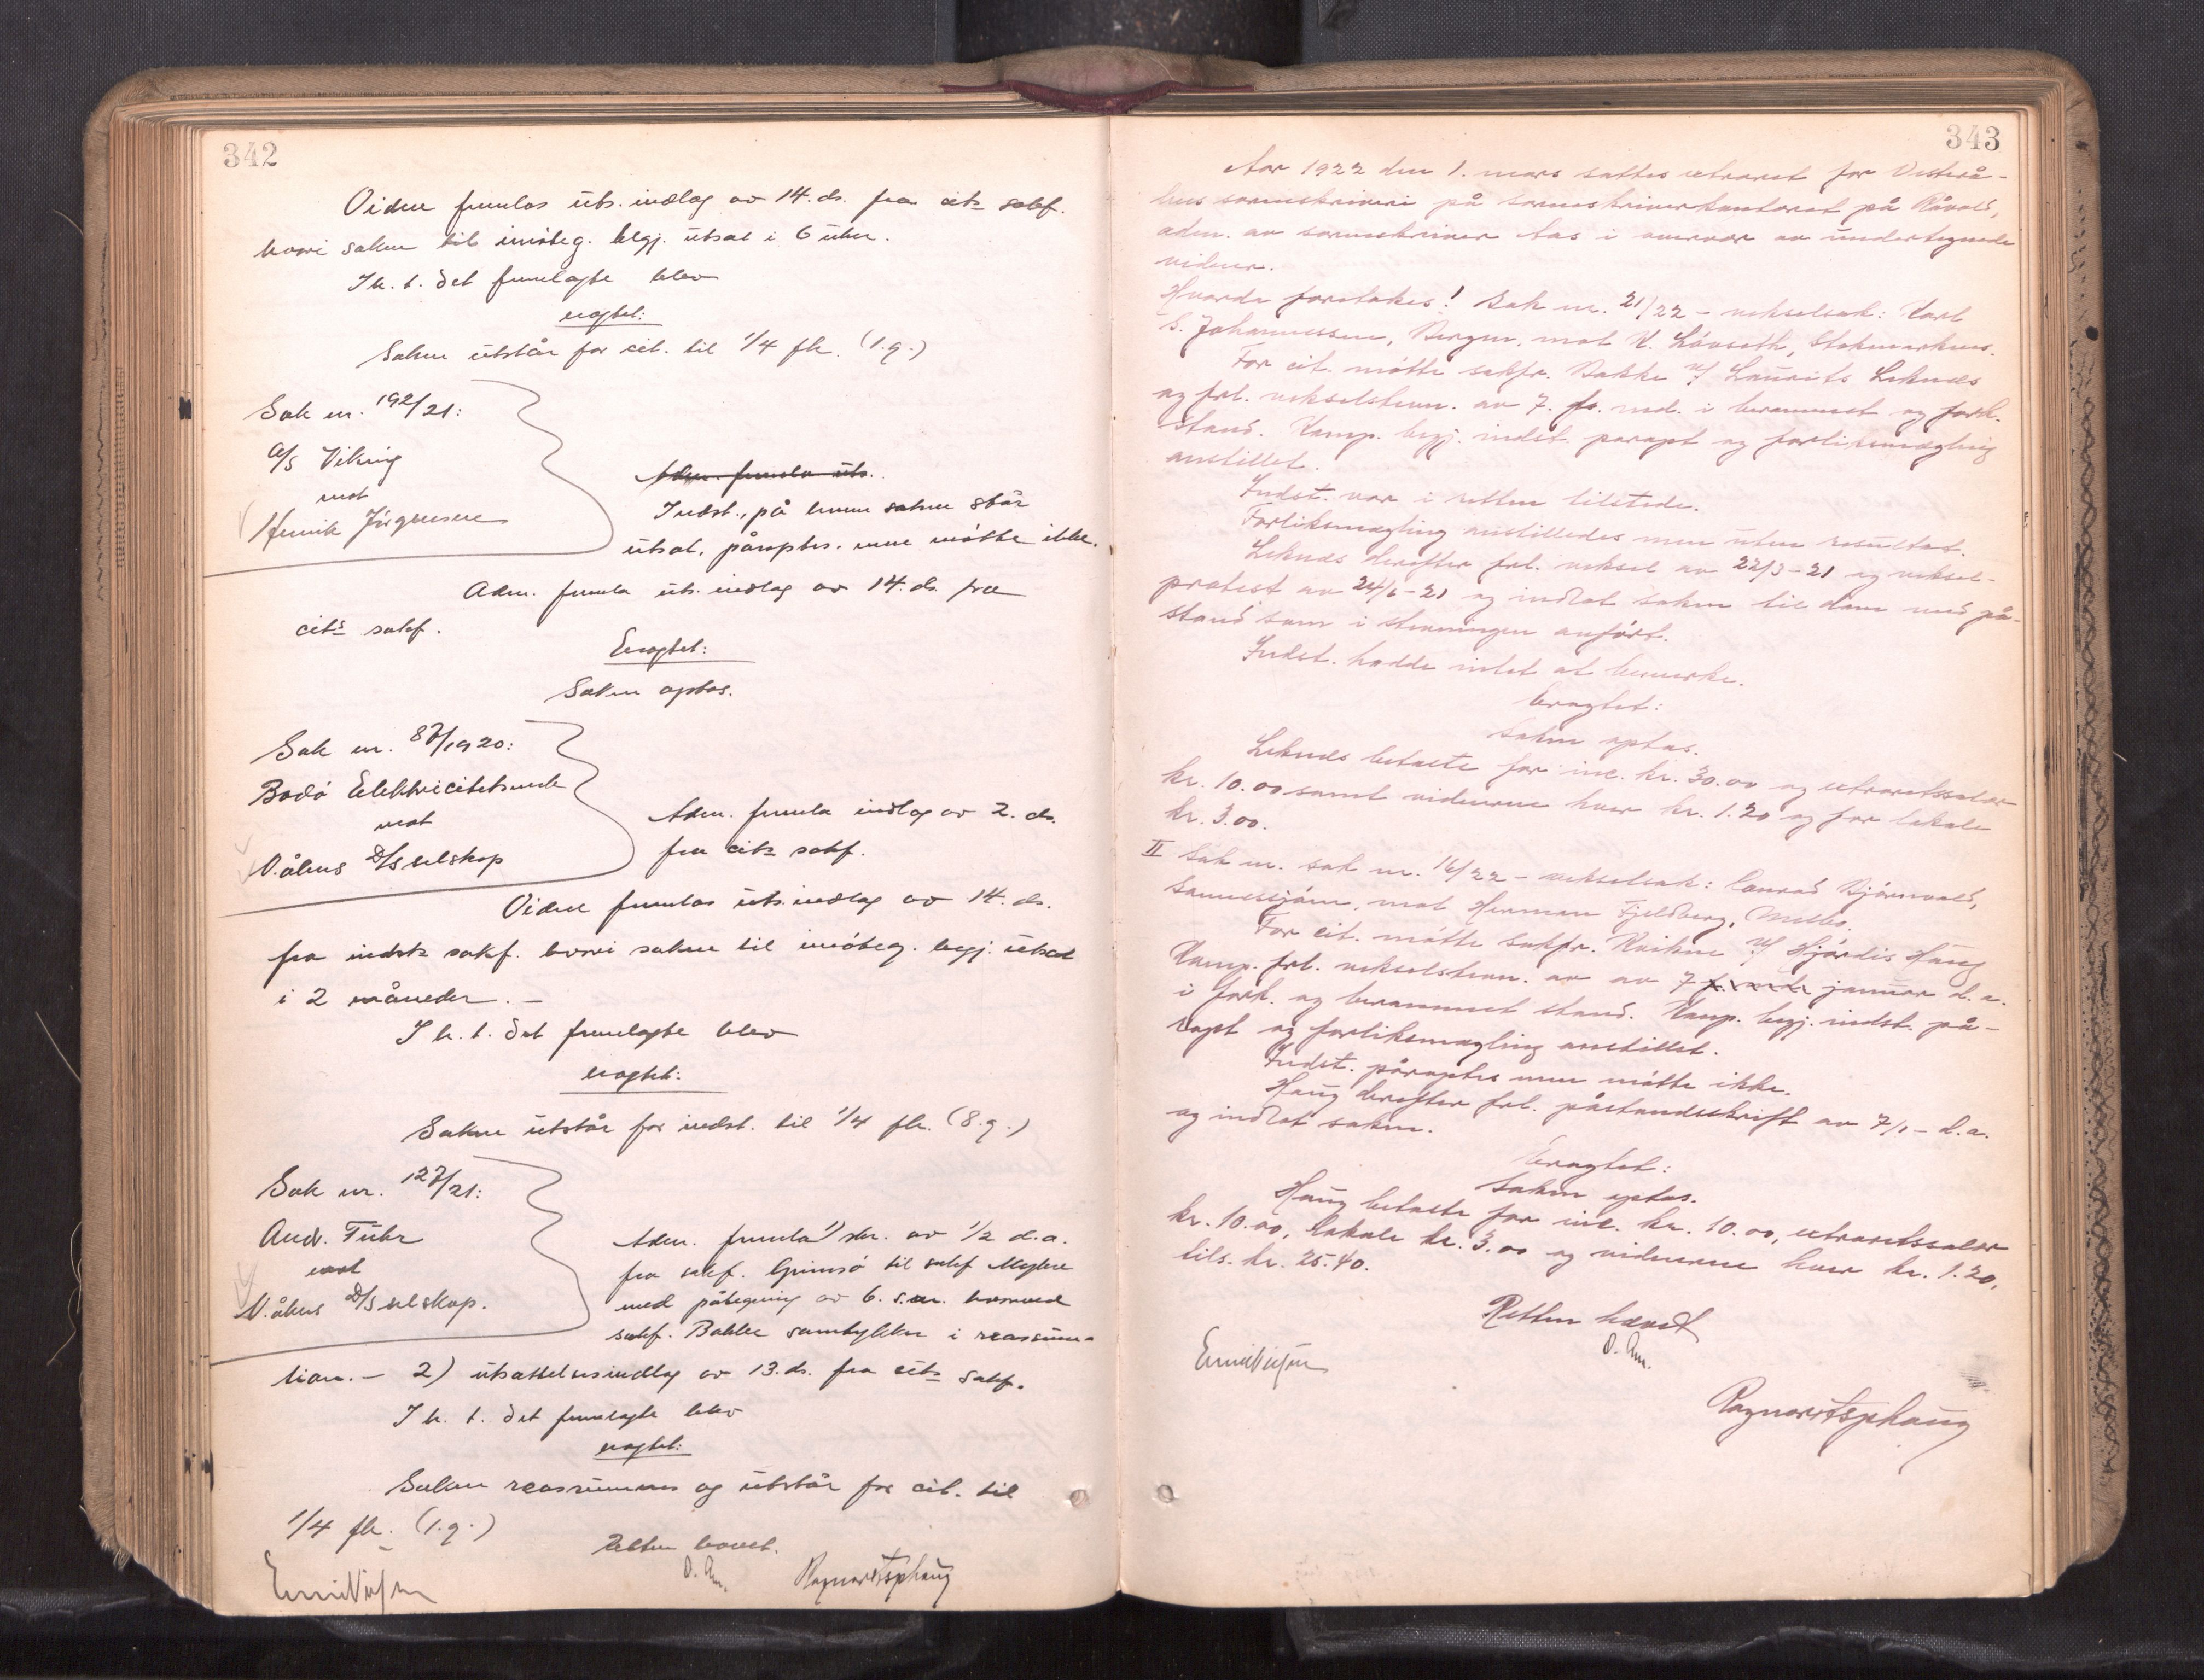 342
Viden fremlas uts. indlæg av 14. ds. fra cits sakf.
hvori saken til imøteg. begj. utsat i 6 uker.
I h. t. det fremlagte blev
eragtet:
Saken utstår for cit. til 1/4 fk. (1.g.)
Sak nr. 192/21:
A/S Viking
mot
Henrik Jörgensen
Adm. fremla uts.
Indst., på hvem saken står
utsat, påroptes, men møtte ikke.
Adm. fremla uts. indlæg av 14. ds. fra
cits sakf.
Eragtet:
Saken optas.
Sak nr. 87/1920:
Bodö Elektricitetsverk
mot
V.ålens D/S selskap
Adm. fremla indlæg av 2. ds.
fra cits sakf.
Viden fremlas uts. indlæg av 14. ds.
fra indsts sakf. hvori saken til imøteg. begj. utsat
i 2 måneder. -
I h. t. det fremlagte blev
eragtet:
Saken utstår for indst. til 1/4 fk. (8.g.)
Sak nr. 127/21:
And. Führ
mot
V.ålens D/S selskap.
Adm. fremla 1) skr. av 1/2 d.a.
fra sakf. Grimsö til sakf
med påtegning av 6. s.m. hvorved
sakf. Bakke samtykker i reassum-
tion. - 2) utsættelsesindlæg av 13. ds. fra cits sakf.
I h. t. det fremlagte blev
eragtet:
Saken reassumeres og utstår for cit. til
1/4 fk. (1.g.)
Retten hævet.
O. Am.
343
Aar 1922 den 1. mars sattes ekstraret for Vesterå-
lens sorenskriveri på sorenskriverkontoret på
adm. av sorenskriver Aas i overvær av undertegnede
vidner.
Hvorda foretokes: Sak nr. 21/22 - vekselsak: Karl
S. Johannessen, Bergen, mot K. Lövseth, Stokmarknes.
For cit. møtte sakfr. Bakke v/ Laurits Leknes
og frl. vekselstevn. av 7. f. md. i berammet og fork.
stand. Komp. begj. indst. paropt og forliksmægling
anstillet.
Indst. var i retten tilstede.
Forliksmægling anstilledes men uten resultat.
Leknes derefter frl. veksel av 22/3-21 og veksel-
protest av 24/6-21 og indlot saken til dom med på-
stand som i stevningen anført.
Indst. hadde intet at bemerke.
Eragtet:
Saken optas.
Leknes betalte for inc. kr. 30.00 og ekstraretssalær
kr. 10.00 samt vidnerne hver kr. 1.20 og for lokale
kr. 3.00.
II Sak nr. sak nr. 16/22 - vekselsak: Conrad Björnvold,
Sannessjöen, mot Herman Fjeldberg, Melbo.
For cit. møtte sakfr. Kvikne v/ Hjördis Haug
Komp. frl. vekselstevn. av av 7 f. md. januar d. a.
i fork. og berammet stand. Komp. begj. indst. på-
ropt og forliksmægling anstillet.
Indst. påroptes men møtte ikke.
Haug derefter frl. påstandsskrift av 7/1 - d.a.
og indlot saken.
Eragtet:
Saken optas.
Haug betalte for inc. kr. 10.00, ekstraretssalær
kr. 10.00, lokale kr. 3.00 og vidnerne hver kr. 1.20,
tils. kr. 25.40.
Retten hævet
O. Am.